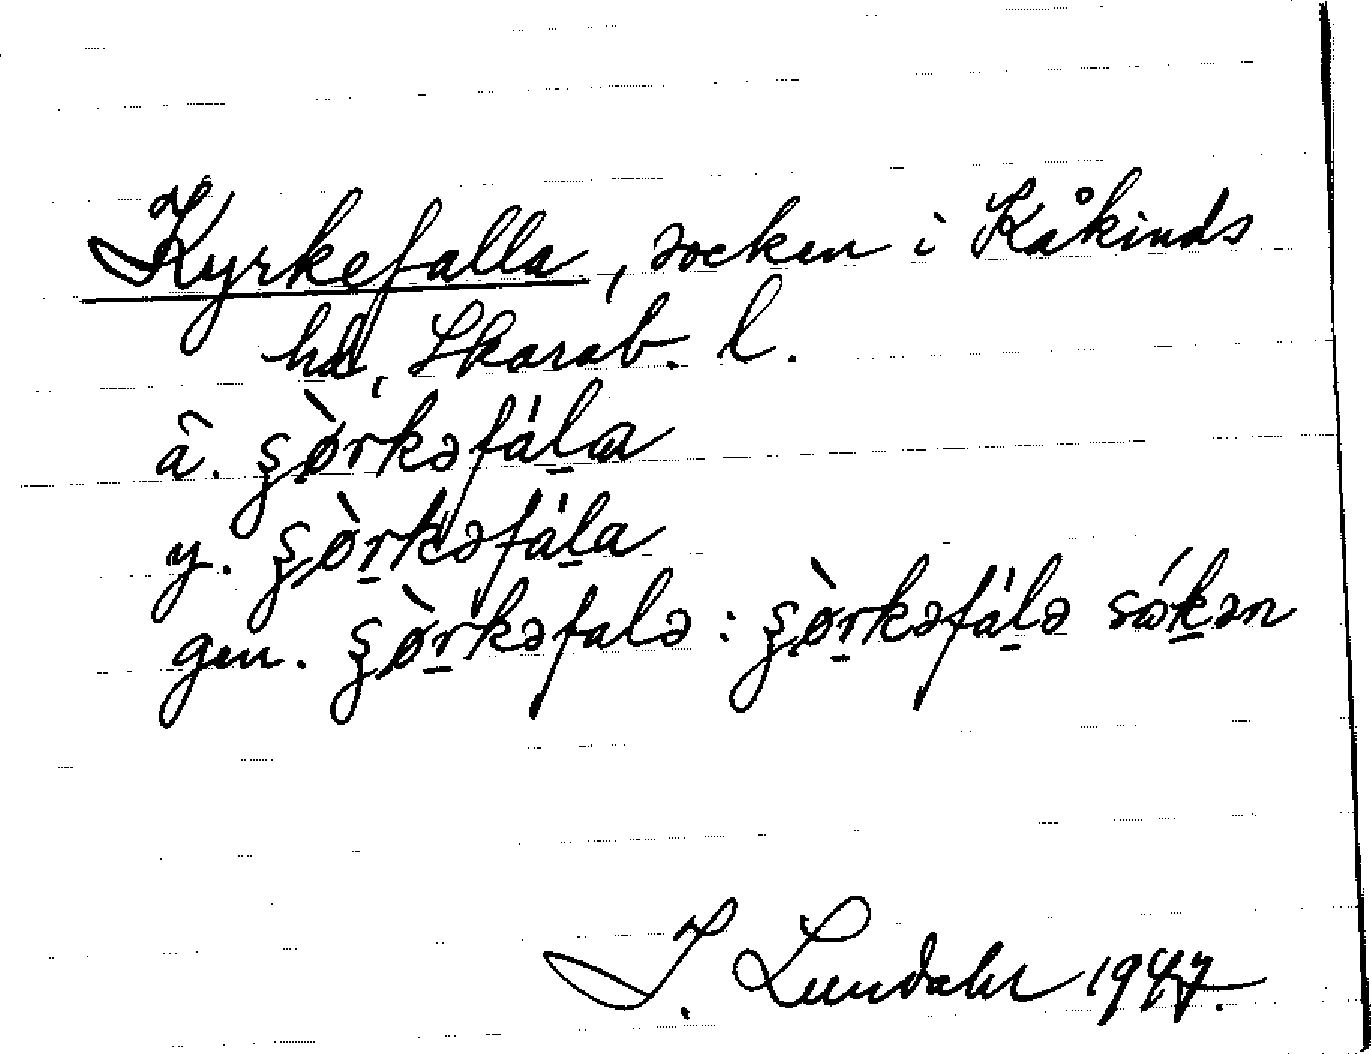 Kyrkefalla, socken i Kåkinds
hd, Skarab. l.
ä. ş̀ørkəfáḻa
y. şø̀ṟkəfáḻa
gen. şø̀ṟkəfalə : şø̀ṟkəfáḻə sɷ́ḵən
I. Lundahl 1947.